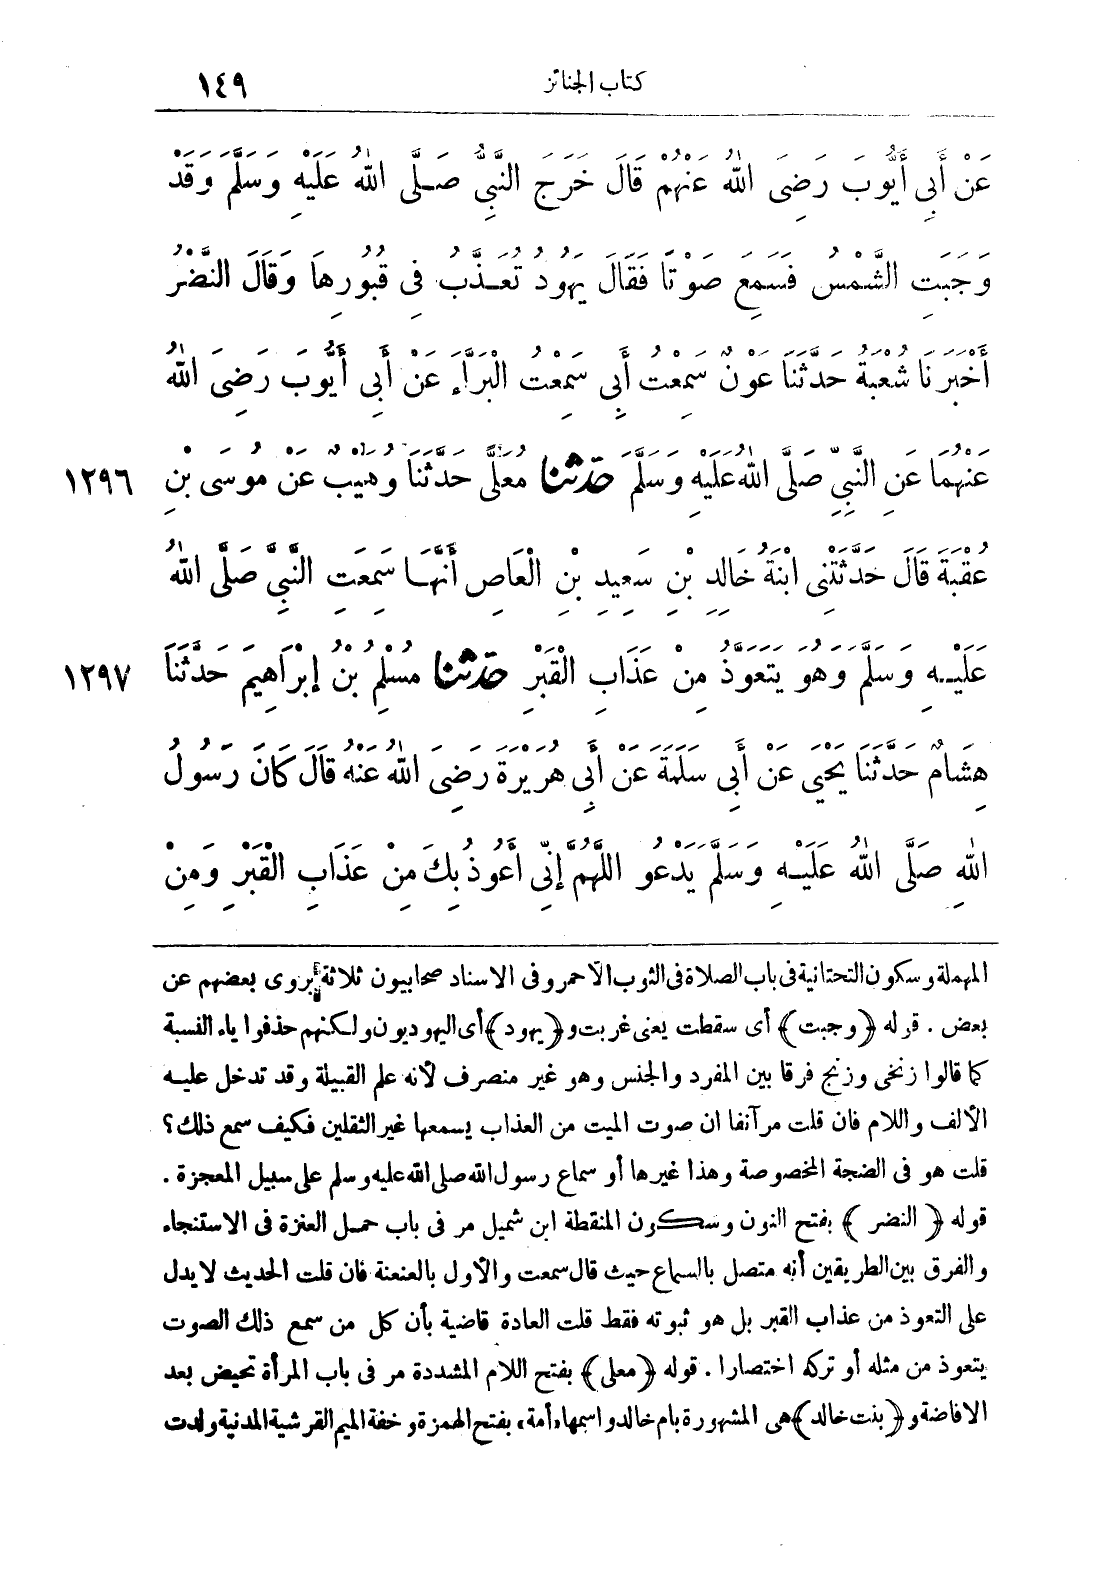 كتاب الجنائز ١٤٩
عَنْ أَبِي أَيُّوبَ رَضِيَ اللهُ عَنْهُمْ قَالَ خَرَجَ النَّبِيُّ صَلَّى اللهُ عَلَيْهِ وَسَلَّمَ وَقَدْ
وَجَبَتِ الشَّمْسُ فَسَمِعَ صَوْتًا فَقَالَ يَهُودُ تُعَذَّبُ فِي قُبُورِهَا وَقَالَ النَّضْرُ
أَخْبَرَنَا شُعْبَةُ حَدَّثَنَا عَوْنٌ سَمِعْتُ أَبِي سَمِعْتُ الْبَرَاءَ عَنْ أَبِي أَيُّوبَ رَضِيَ اللهُ
عَنْهُمَا عَنِ النَّبِيِّ صَلَّى اللهُ عَلَيْهِ وَسَلَّمَ حَدَّثَنَا مُعَلَّى حَدَّثَنَا وُهَيْبٌ عَنْ مُوسَى بْنِ ١٢٩٦
عُقْبَةَ قَالَ حَدَّثَتْنِي ابْنَةُ خَالِدِ بْنِ سَعِيدِ بْنِ الْعَاصِ أَنَّهَا سَمِعَتِ النَّبِيَّ صَلَّى اللهُ
عَلَيْهِ وَسَلَّمَ وَهُوَ يَتَعَوَّذُ مِنْ عَذَابِ الْقَبْرِ حَدَّثَنَا مُسْلِمُ بْنُ إِبْرَاهِيمَ حَدَّثَنَا ١٢٩٧
هِشَامٌ حَدَّثَنَا يَحْيَى عَنْ أَبِي سَلَمَةَ عَنْ أَبِي هُرَيْرَةَ رَضِيَ اللهُ عَنْهُ قَالَ كَانَ رَسُولُ
اللهِ صَلَّى اللهُ عَلَيْهِ وَسَلَّمَ يَدْعُو اللَّهُمَّ إِنِّي أَعُوذُ بِكَ مِنْ عَذَابِ الْقَبْرِ وَمِنْ
المهملة وسكون التحتانية فى باب الصلاة فى الثوب الأحمر وفى الاسناد صحابيون ثلاثة يروى بعضهم عن
بعض . قوله ﴿وجبت﴾ أى سقطت يعنى غربت و ﴿يهود﴾ أى اليهوديون ولكنهم حذفوا ياء النسبة
كما قالوا زنجى وزنج فرقا بين المفرد والجنس وهو غير منصرف لأنه علم القبيلة وقد تدخل عليه
الألف واللام فان قلت مر آنفا ان صوت الميت من العذاب يسمعها غير الثقلين فكيف سمع ذلك؟
قلت هو فى الضجة المخصوصة وهذا غيرها أو سماع رسول الله صلى الله عليه وسلم على سبيل المعجزة .
قوله ﴿النضر﴾ بفتح النون وسكون المنقطة ابن شميل مر فى باب حمل العنزة فى الاستنجاء
والفرق بين الطريقين أنه متصل بالسماع حيث قال سمعت والأول بالعنعنة فان قلت الحديث لا يدل
على التعوذ من عذاب القبر بل هو ثبوته فقط قلت العادة قاضية بأن كل من سمع ذلك الصوت
يتعوذ من مثله أو تركه اختصارا . قوله ﴿معلى﴾ بفتح اللام المشددة مر فى باب المرأة تحيض بعد
الافاضة و ﴿بنت خالد﴾ هى المشهورة بام خالد واسمها «أمة» بفتح الهمزة وخفة الميم القرشية المدنية ولدت